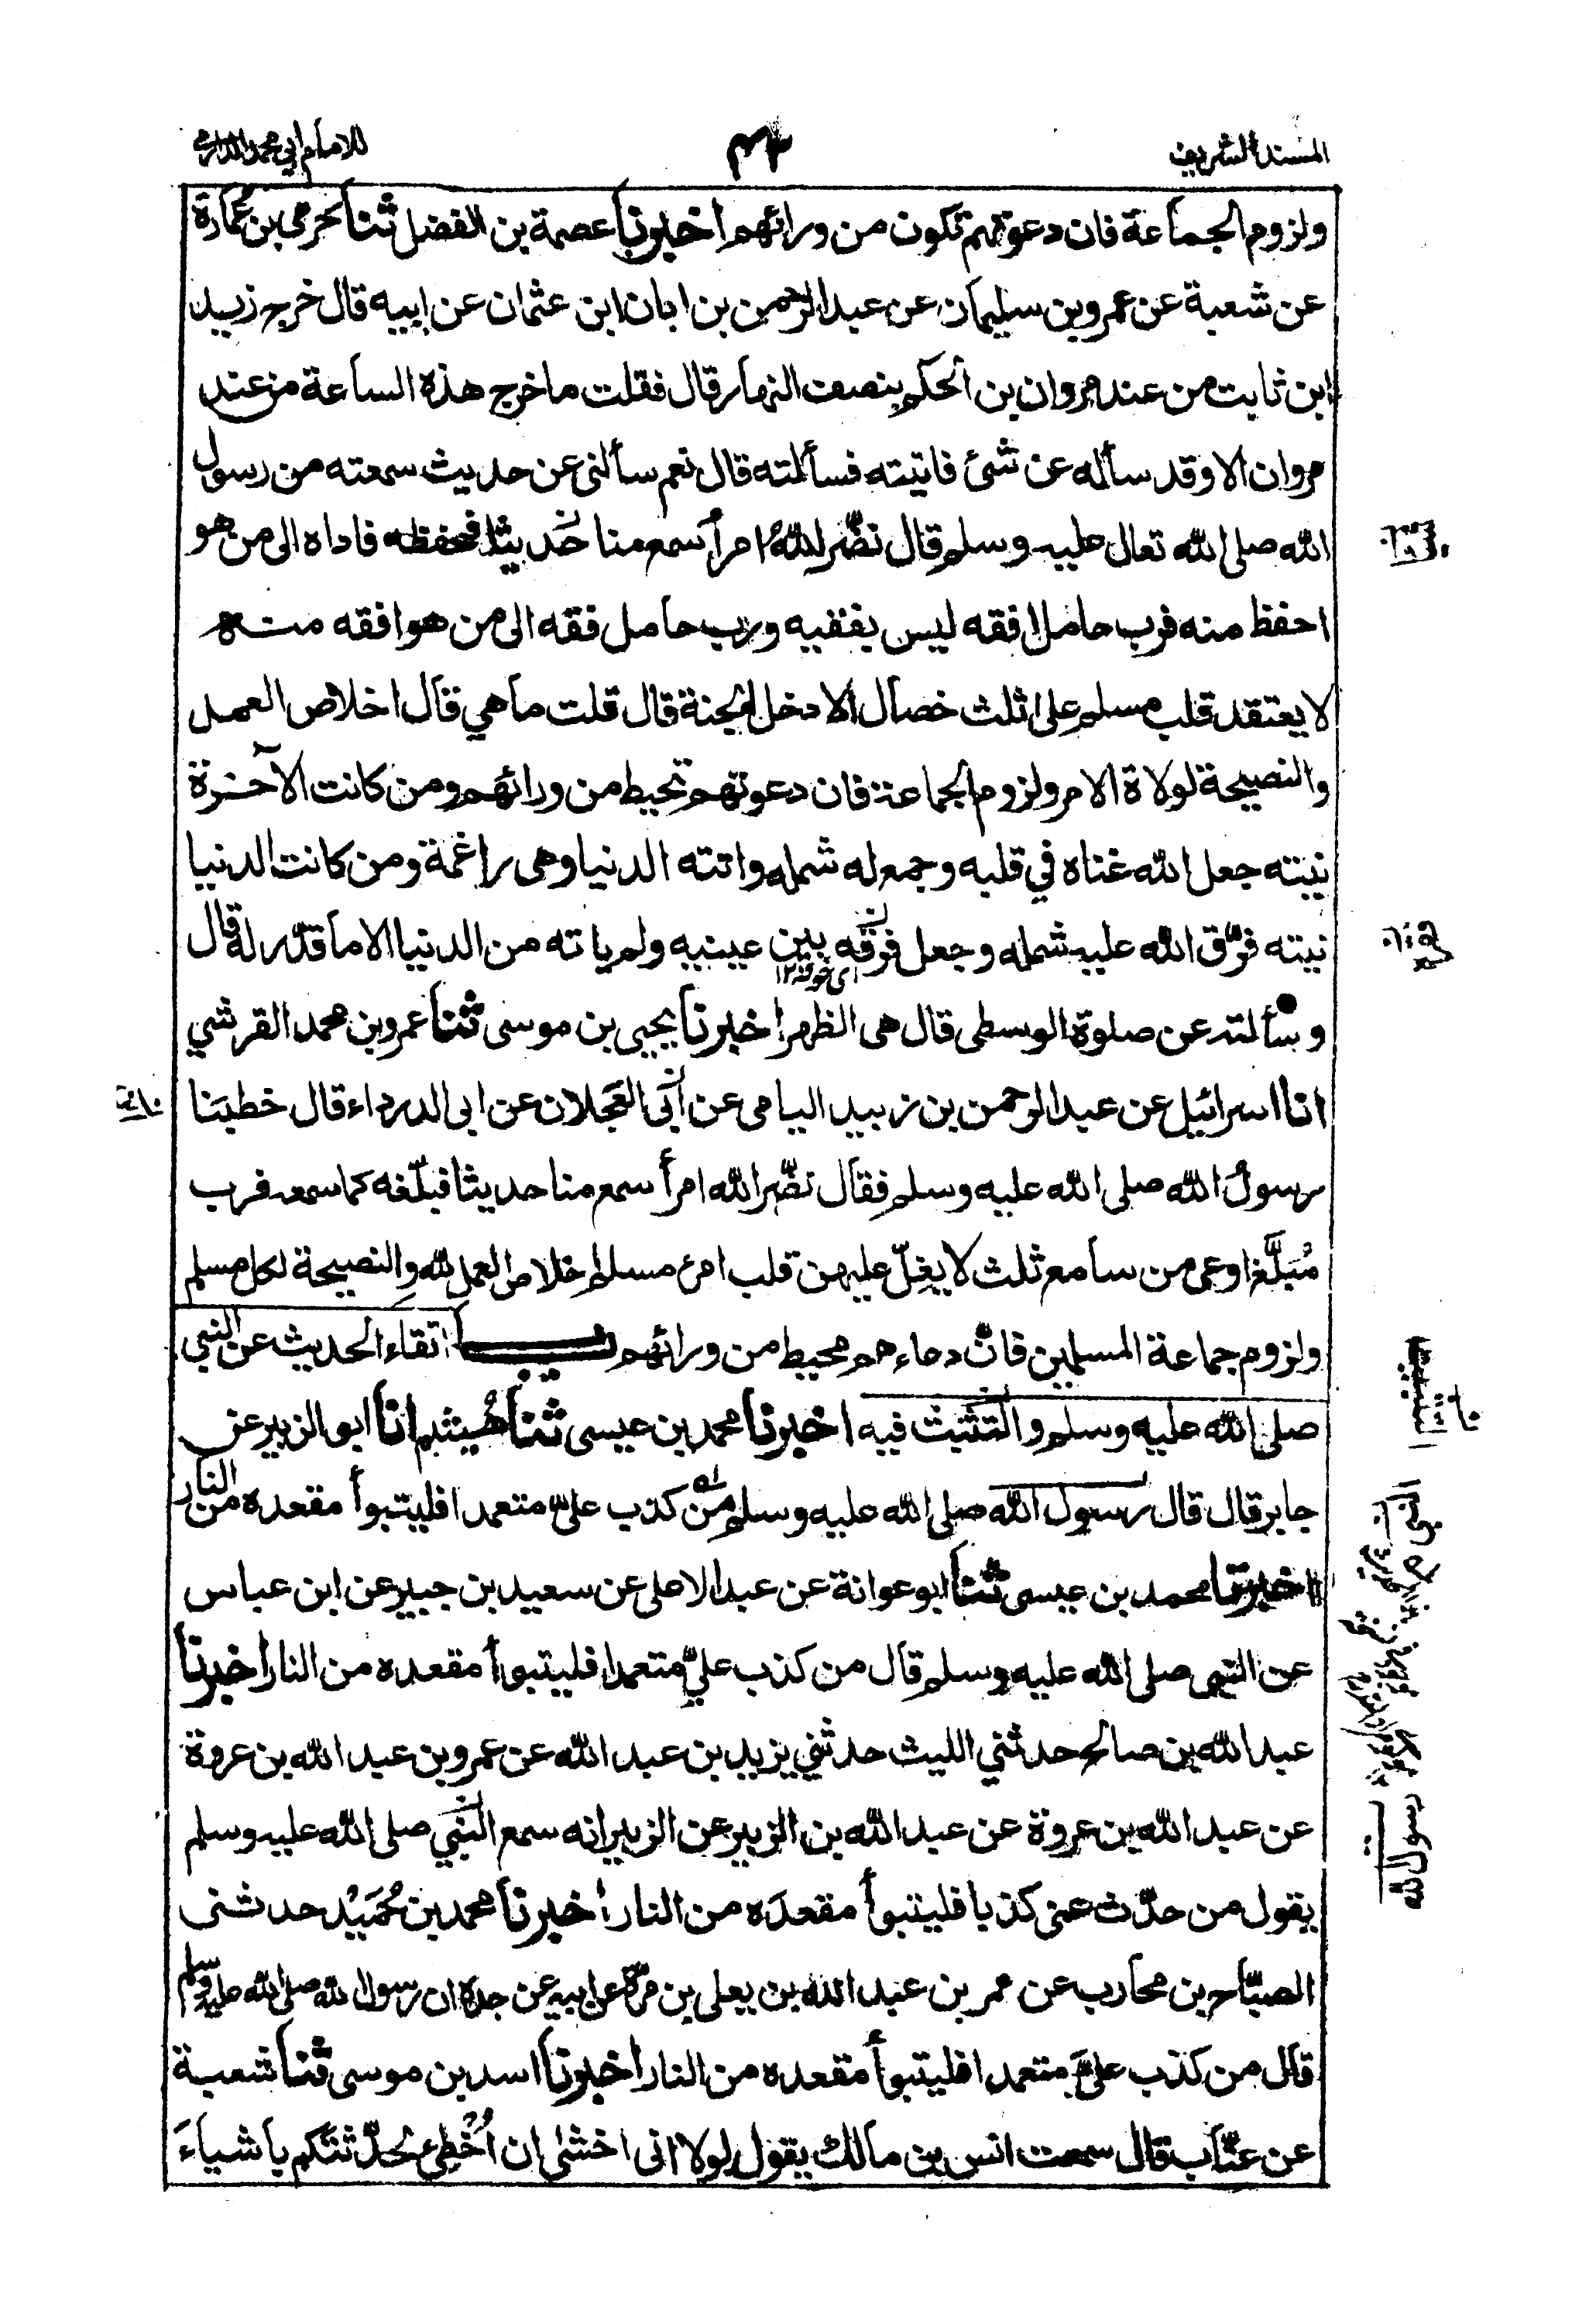 المسند الشريف
للامام ابي محمد الدارمي
ولزوم الجماعة فان دعوتهم تكون من ورائهم اخبرنا عصمة بن الفضل ثنا حرمى بن عمارة
عن شعبة عن عمرو بن سليمان عن عبد الرحمن بن ابان ابن عثمان عن ابيه قال خرج زيد
ابن ثابت من عند مروان بن الحكم بنصف النهار قال فقلت ما خرج هذه الساعة من عند
مروان الا وقد سأله عن شئ فاتيته فسألته قال نعم سألنى عن حديث سمعته من رسول
الله صلى الله تعالى عليه وسلم قال نضّر اللهُ امرأ سمع منا حديثا فحفظه فاداه الى من هو
احفظ منه فرب حامل فقه ليس بفقيه ورب حامل فقه الى من هو افقه منه
لا يعتقد قلب مسلم على ثلث خصال الا دخل الجنة قال قلت ما هي قال اخلاص العمل
والنصيحة لولاة الامر ولزوم الجماعة فان دعوتهم تحيط من ورائهم ومن كانت الآخرة
نيته جعل الله غناه في قلبه وجمع له شمله واتته الدنيا وهى راغمة ومن كانت الدنيا
نيته فرّق الله عليه شمله وجعل فرقه بين عينيه ولم ياته من الدنيا الا ما قدّر له قال
اى خوفه ١٢
وسألته عن صلوة الوسطى قال هى الظهر اخبرنا يحيى بن موسى ثنا عمرو بن محمد القرشي
انا اسرائيل عن عبد الرحمن بن زبيد اليامى عن ابى العجلان عن ابى الدرداء قال خطبنا
رسولُ الله صلى الله عليه وسلم فقال نضّر الله امرأ سمع منا حديثا فبلّغه كما سمعه فرب
مُبلَّغ اوعى من سامع ثلث لا يغِلّ عليهن قلب امرء مسلم اخلاص العمل لله والنصيحة لكل مسلم
ولزوم جماعة المسلمين فانّ دعاءهم محيط من ورائهم باب اتقاء الحديث عن النبي
صلى الله عليه وسلم والتثبت فيه اخبرنا محمد بن عيسى ثنا هُشيم انا ابو الزبير عن
جابر قال قال رسول الله صلى الله عليه وسلم من كذب علىّ متعمدا فليتبوأ مقعده من النار
اخبرنا محمد بن عيسى ثنا ابو عوانة عن عبد الاعلى عن سعيد بن جبير عن ابن عباس
عن النبى صلى الله عليه وسلم قال من كذب عليّ متعمدا فليتبوأ مقعده من النار اخبرنا
عبد الله بن صالح حدثني الليث حدثني يزيد بن عبد الله عن عمرو بن عبد الله بن عروة
عن عبد الله بن عروة عن عبد الله بن الزبير عن الزبير انه سمع النبي صلى الله عليه وسلم
يقول من حدّث عنى كذبا فليتبوأ مقعدَه من النار اخبرنا محمد بن حُمَيْد حدثنى
الصبّاح بن محارب عن عمر بن عبد الله بن يعلى بن مرّة عن ابيه عن جده ان رسول الله صلى الله عليه وسلم
قال من كذب علىَّ متعمدا فليتبوأ مقعده من النار اخبرنا اسد بن موسى ثنا شعبة
عن عتّاب قال سمعت انس بن مالك يقول لولا انى اخشى ان اُخْطِئ لحدّثتكم باشياءَ
النبى
رسول الله